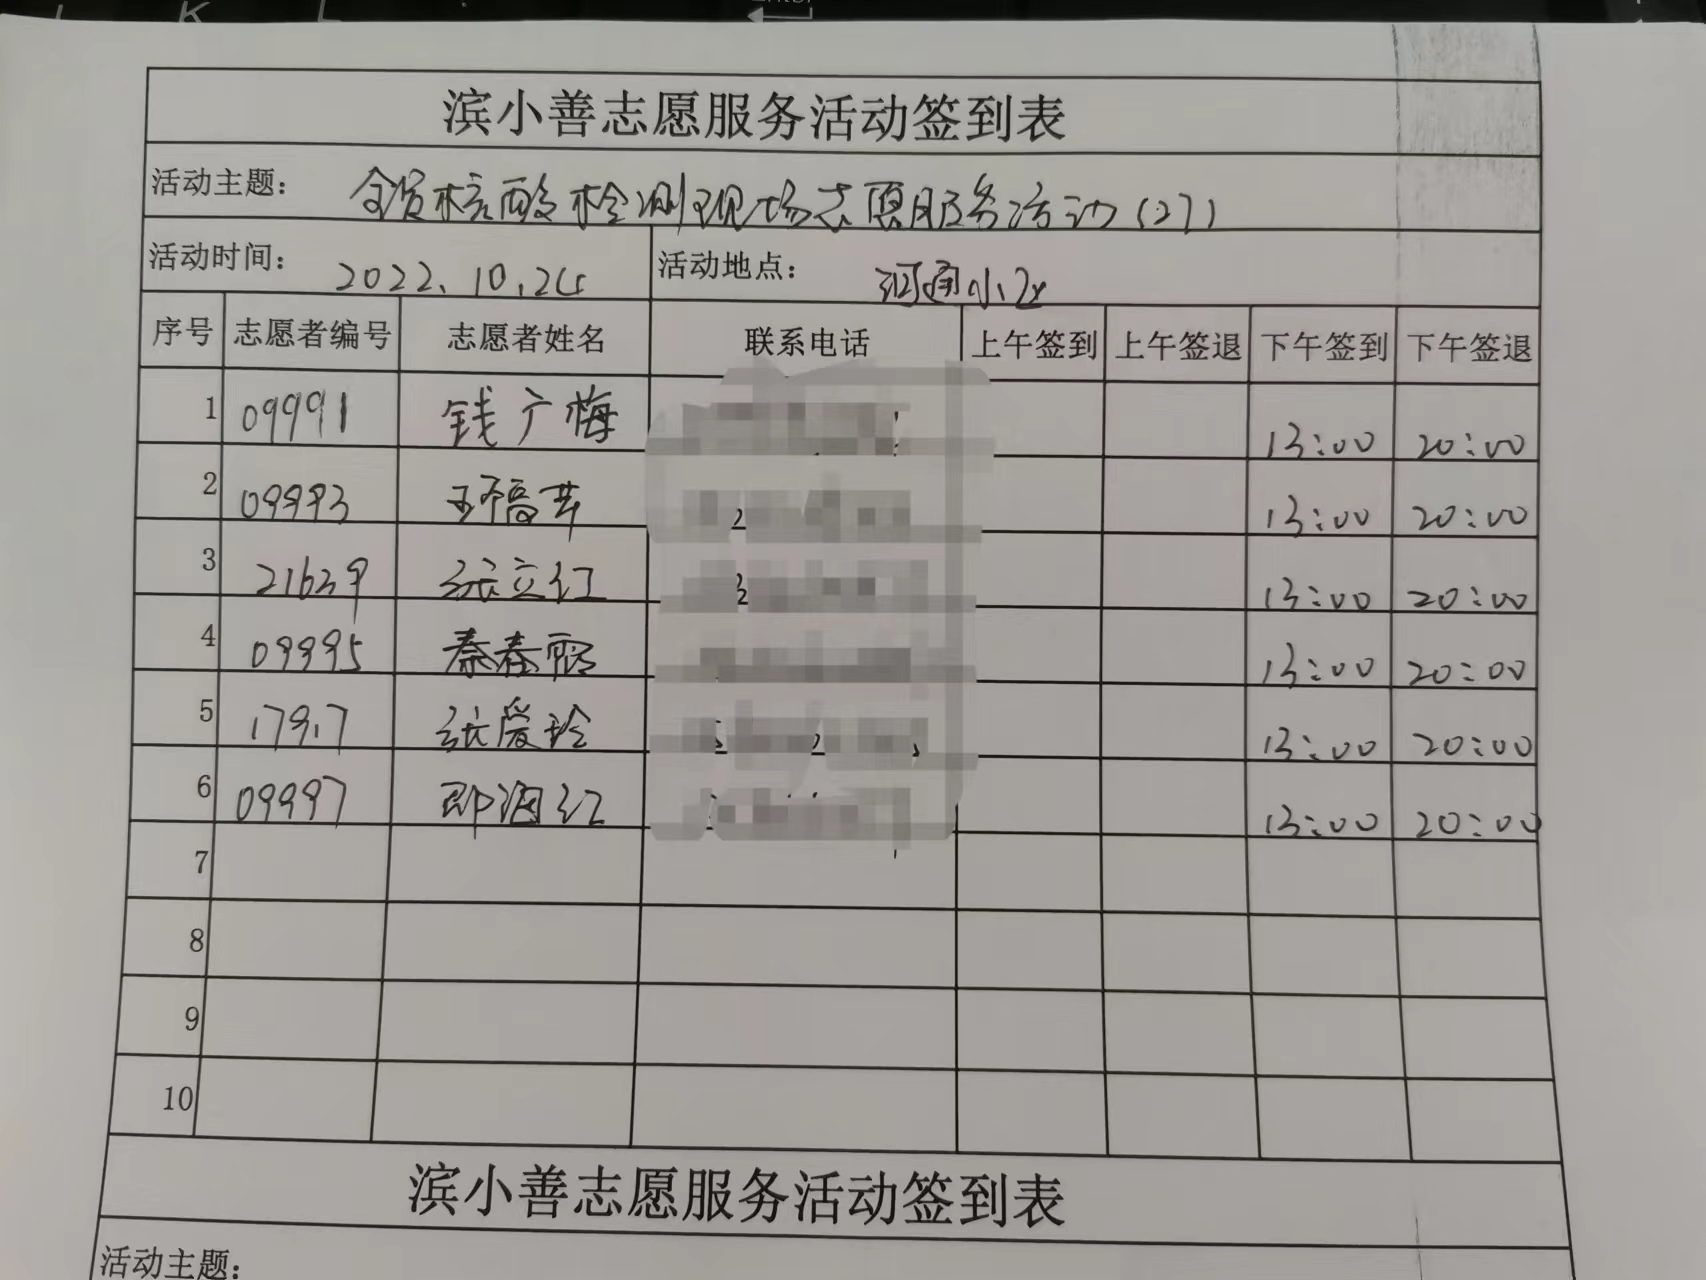 滨小善志愿服务活动签到表
活动主题： 全员核酸检测现场志愿服务活动(27)
活动时间： 2022.10.24 活动地点： 河通小区
序号 志愿者编号 志愿者姓名 联系电话 上午签到 上午签退 下午签到 下午签退
1 09991 钱广梅 13:00 20:00
2 09993 13:00 20:00
3 21639 张立红 13:00 20:00
4 09995 秦春丽 13:00 20:00
5 17917 张爱玲 13:00 20:00
6 09997 13:00 20:00
7
8
9
10
滨小善志愿服务活动签到表
活动主题：